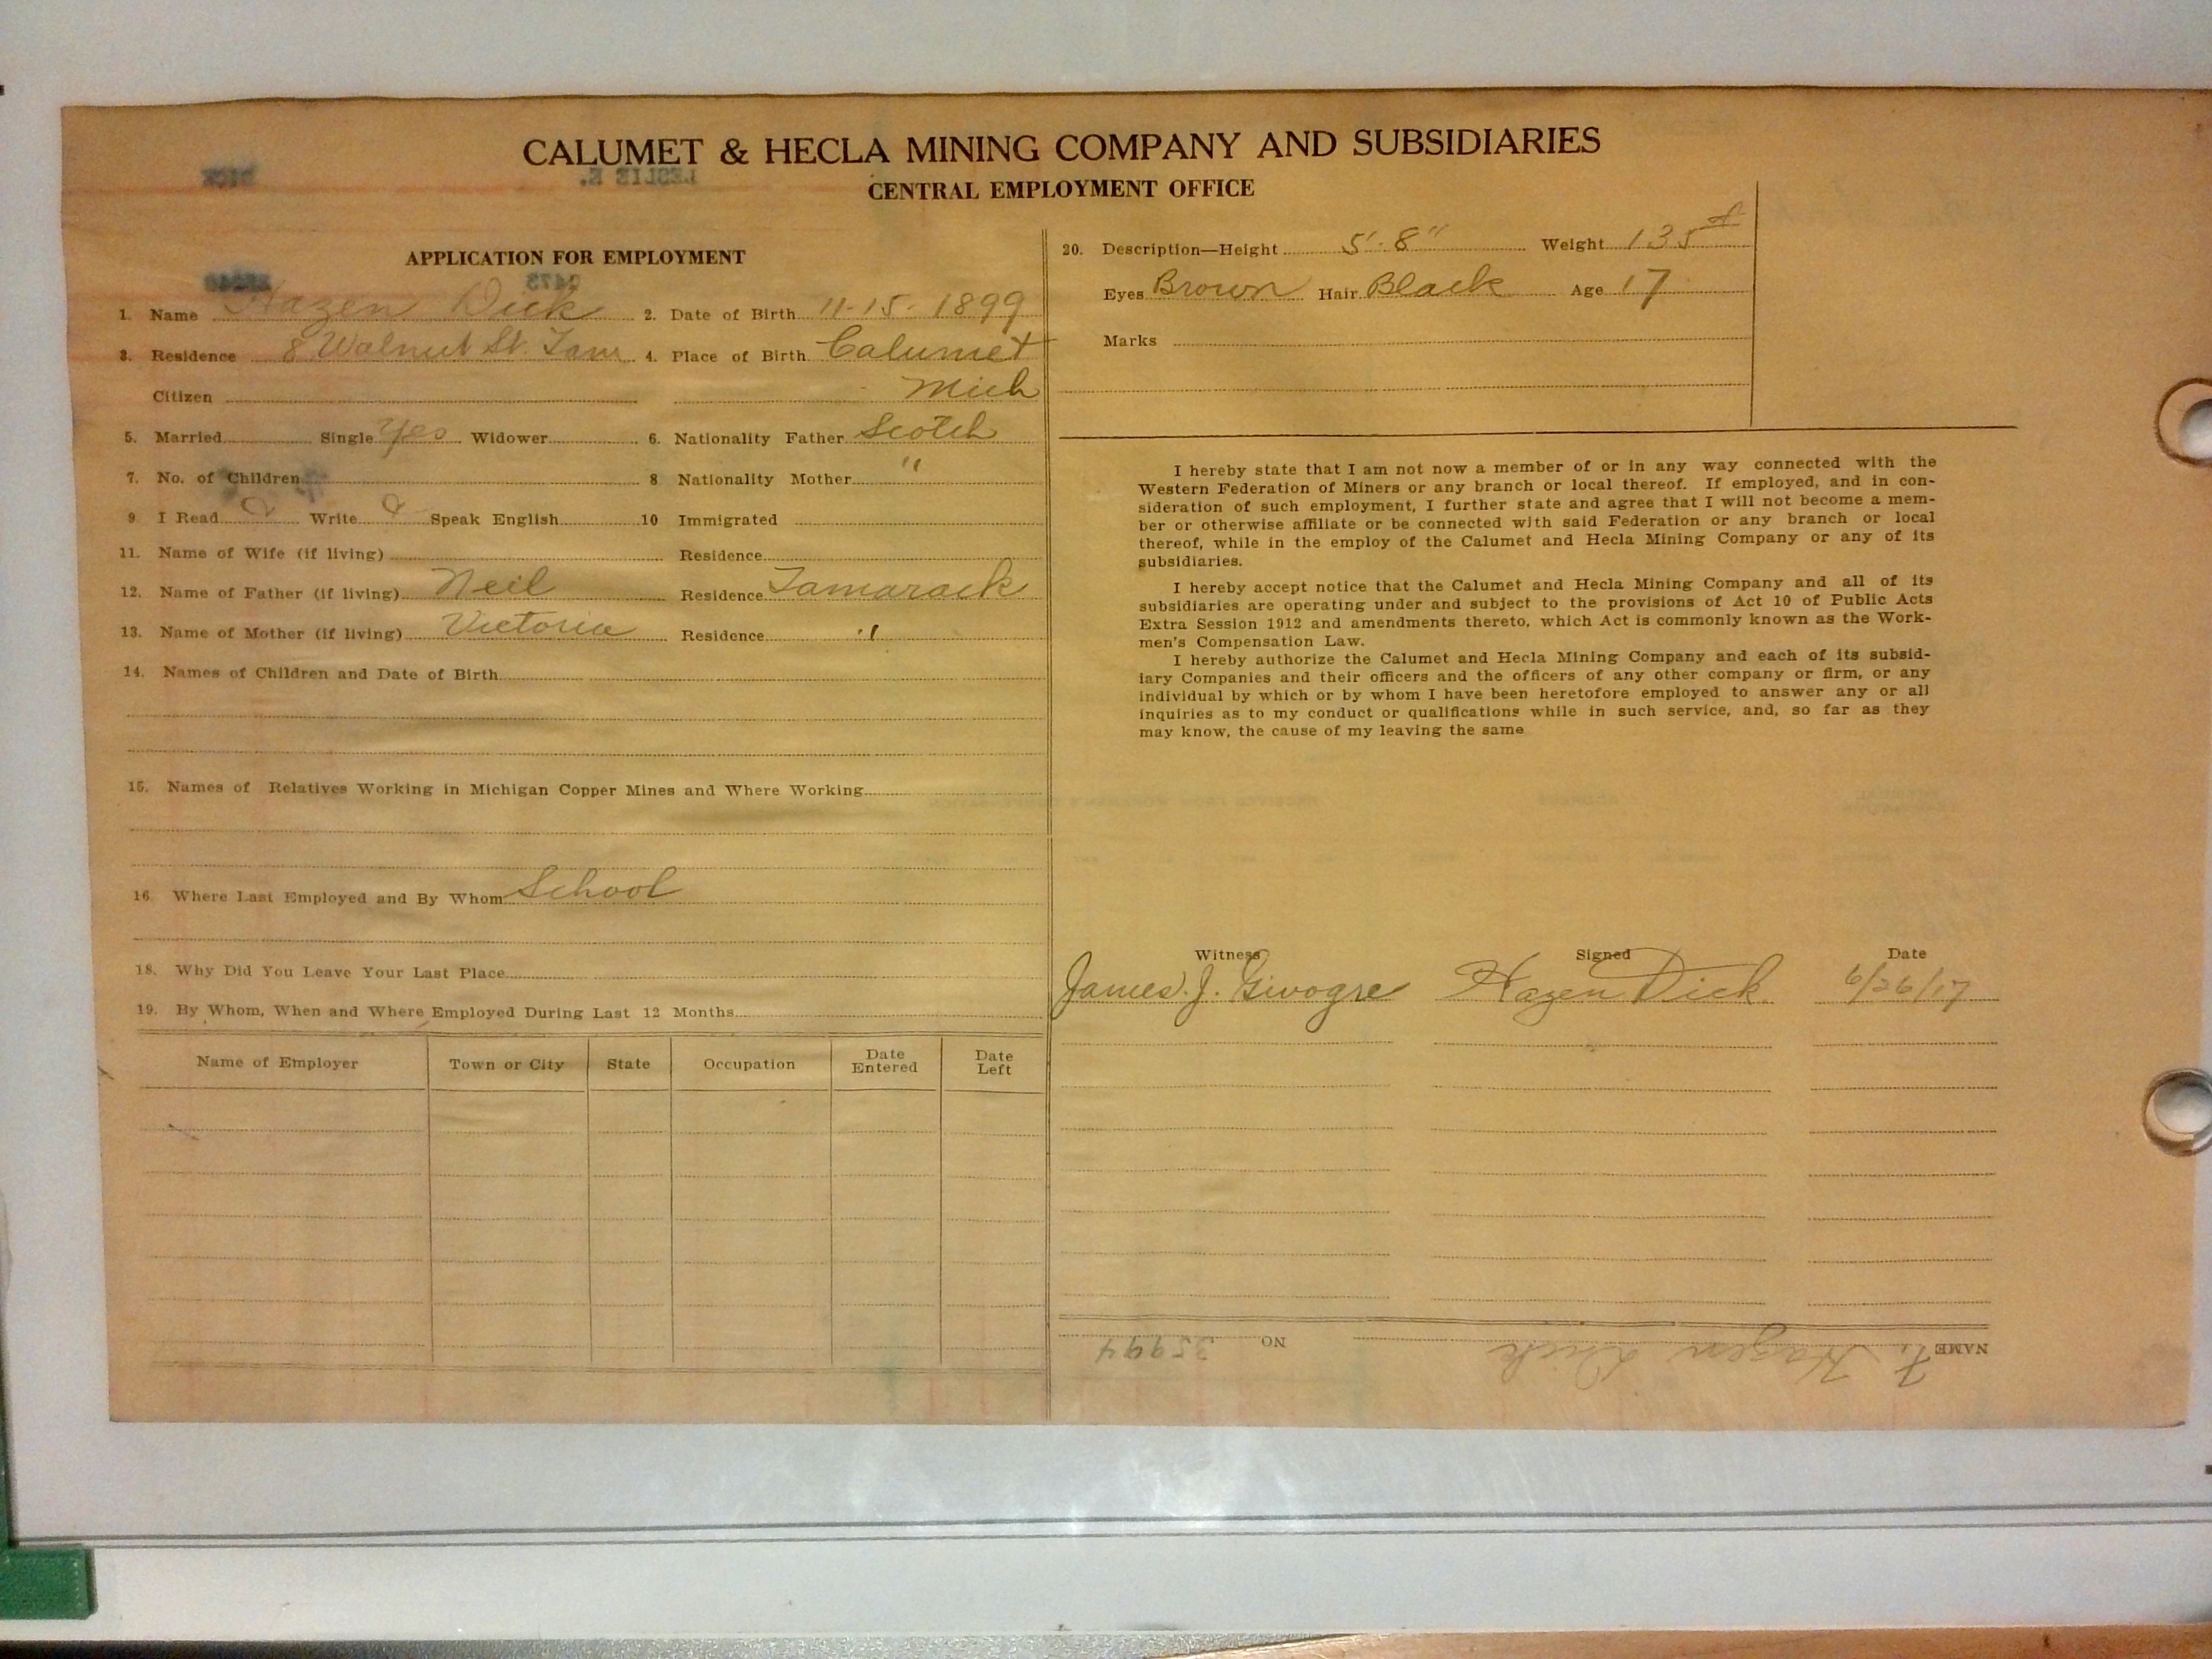 CALUMET & HECLA MINING COMPANY AND SUBSIDIARIES
CENTRAL EMPLOYMENT OFFICE
DICK LESLIE E.
APPLICATION FOR EMPLOYMENT
1. Name Hazen Dick 2. Date of Birth 11-15-1899
3. Residence 8 Walnut St. Tam 4. Place of Birth Calumet
Citizen Mich
5. Married Single Yes Widower 6. Nationality Father Scotch
7. No. of Children 8 Nationality Mother "
9 I Read Write Speak English 10 Immigrated
11. Name of Wife (if living) Residence
12. Name of Father (if living) Neil Residence Tamarack
13. Name of Mother (if living) Victoria Residence "
14. Names of Children and Date of Birth
15. Names of Relatives Working in Michigan Copper Mines and Where Working
16. Where Last Employed and By Whom School
18. Why Did You Leave Your Last Place
19. By Whom, When and Where Employed During Last 12 Months
Name of Employer Town or City State Occupation Date Entered Date Left
20. Description—Height 5'-8" Weight 135#
Eyes Brown Hair Black Age 17
Marks
I hereby state that I am not now a member of or in any way connected with the
Western Federation of Miners or any branch or local thereof. If employed, and in con-
sideration of such employment, I further state and agree that I will not become a mem-
ber or otherwise affiliate or be connected with said Federation or any branch or local
thereof, while in the employ of the Calumet and Hecla Mining Company or any of its
subsidiaries.
I hereby accept notice that the Calumet and Hecla Mining Company and all of its
subsidiaries are operating under and subject to the provisions of Act 10 of Public Acts
Extra Session 1912 and amendments thereto, which Act is commonly known as the Work-
men's Compensation Law.
I hereby authorize the Calumet and Hecla Mining Company and each of its subsid-
iary Companies and their officers and the officers of any other company or firm, or any
individual by which or by whom I have been heretofore employed to answer any or all
inquiries as to my conduct or qualifications while in such service, and, so far as they
may know, the cause of my leaving the same
Witness Signed Date
James. J. Hazen Dick 6/26/17
NAME F. Hazen Dick NO 35994